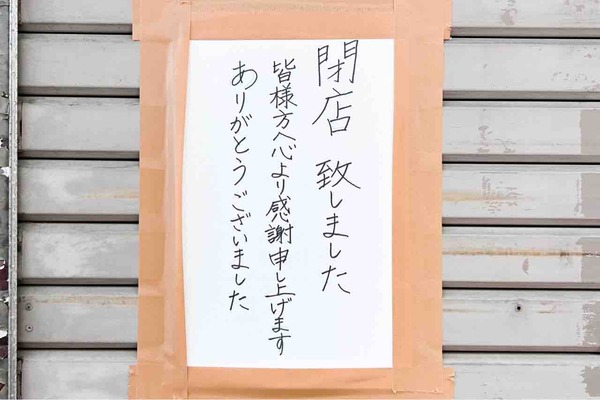 閉店 致しました
皆様方へ心より感謝申し上げます
ありがとうございました